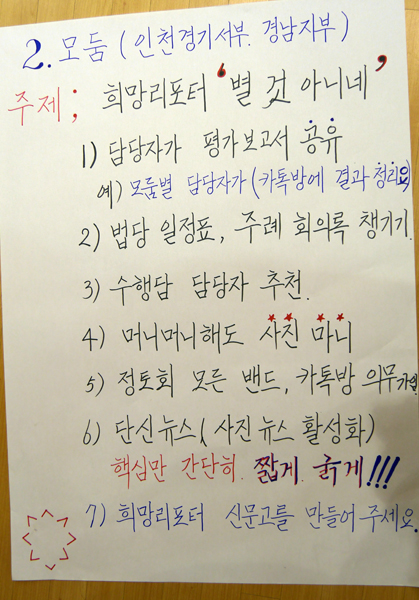 2. 모둠 (인천경기서부. 경남지부)
주제; 희망리포터 '별 것 아니네'
1) 담당자가 평가보고서 공유
예) 모둠별 담당자가 (카톡방에 결과 정리요)
2) 법당 일정표, 주례 회의록 챙기기.
3) 수행담 담당자 추천.
4) 머니머니해도 사진 마니
5) 정토회 모든 밴드, 카톡방 의무가입
6) 단신뉴스 (사진뉴스 활성화)
핵심만 간단히. 짧게. 굵게!!!
7) 희망리포터 신문고를 만들어 주세요.